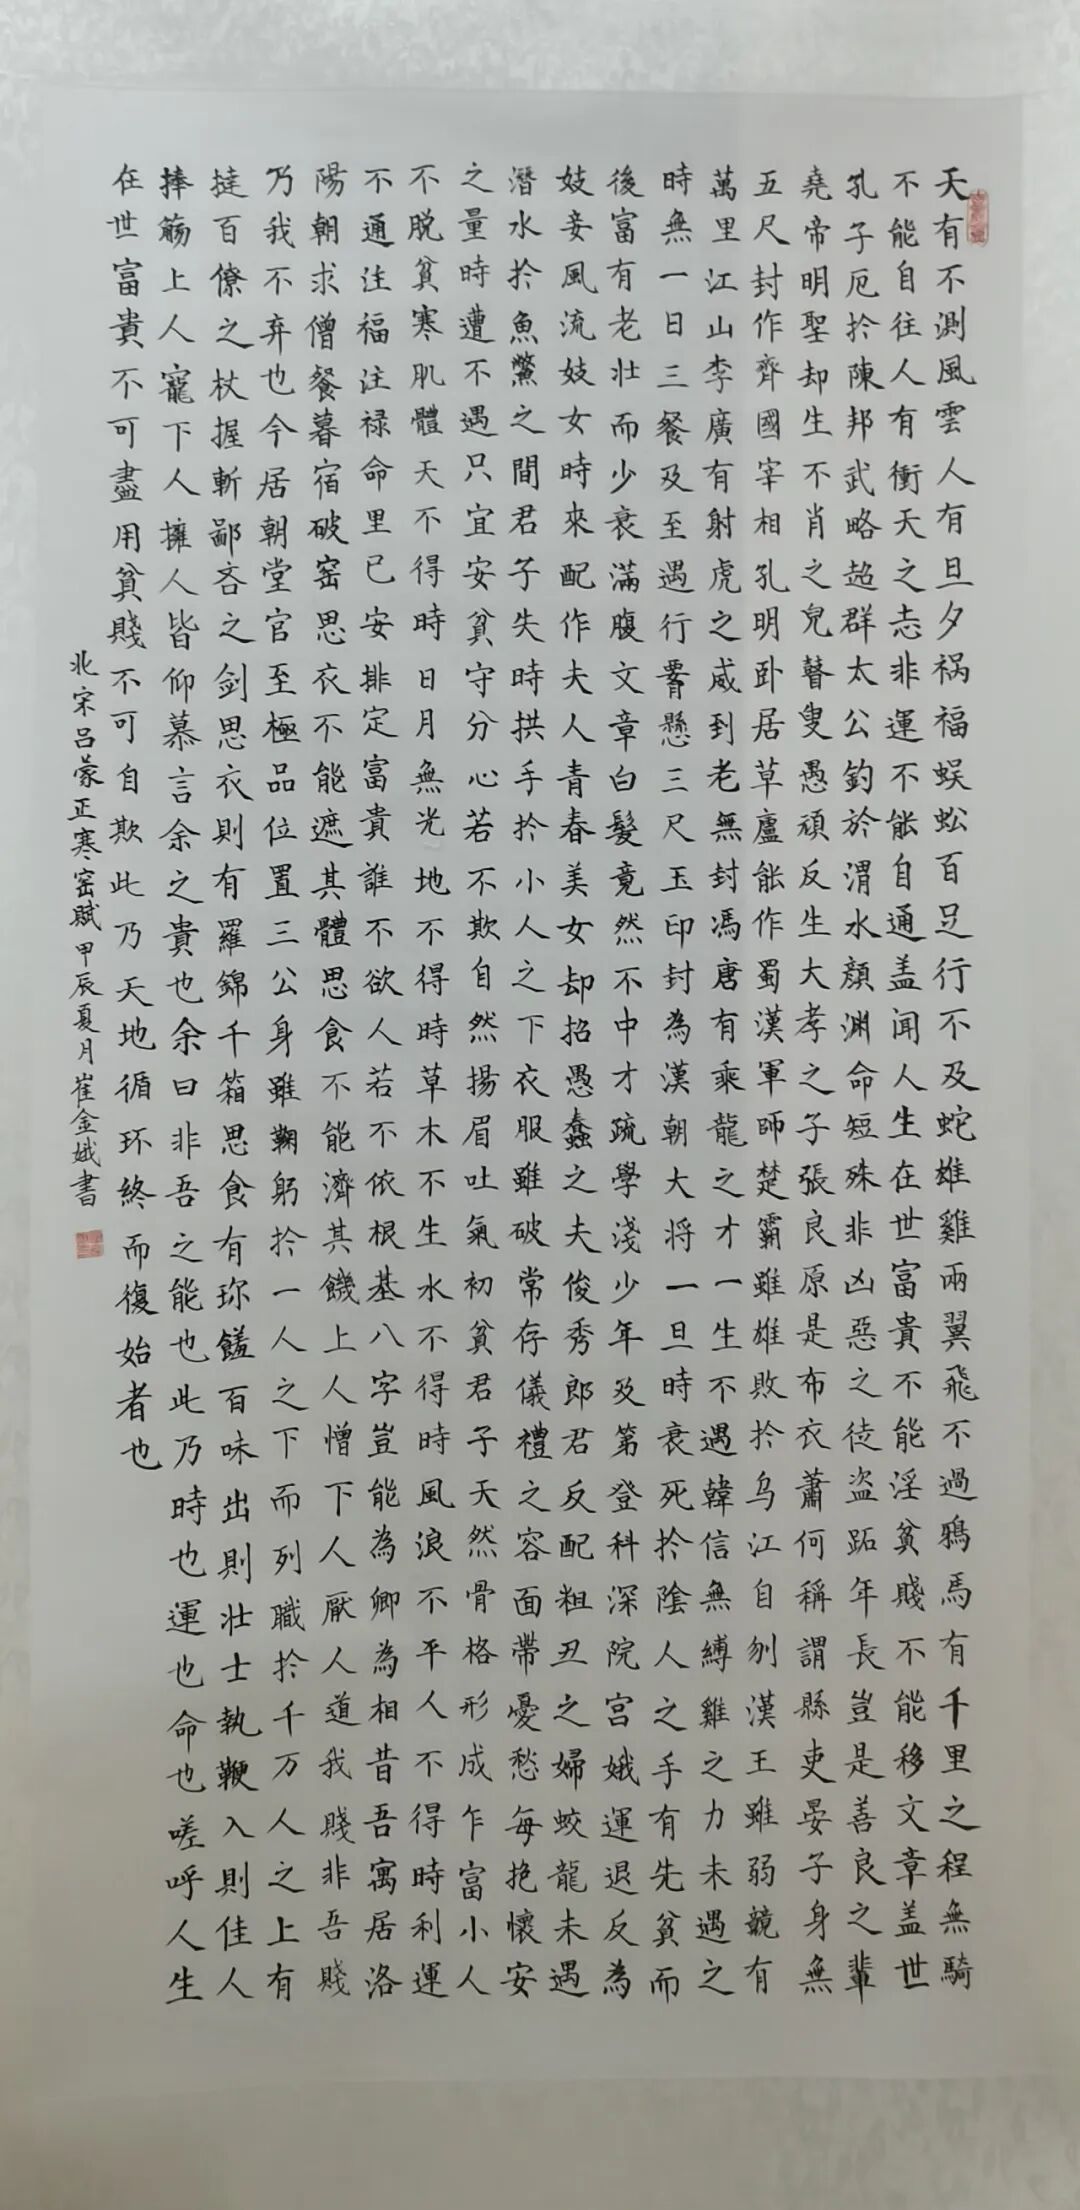 天有不測風雲人有旦夕禍福蜈蚣百足行不及蛇雄雞兩翼飛不過鴉馬有千里之程無騎
不能自往人有衝天之志非運不能自通盖闻人生在世富貴不能淫貧賤不能移文章盖世
孔子厄扵陳邦武略超群太公釣於渭水顏淵命短殊非凶惡之徒盗跖年長豈是善良之輩
堯帝明聖却生不肖之兒瞽叟愚頑反生大孝之子張良原是布衣蕭何稱謂縣吏晏子身無
五尺封作齊國宰相孔明卧居草廬能作蜀漢軍師楚霸雖雄敗扵乌江自刎漢王雖弱競有
萬里江山李廣有射虎之威到老無封馮唐有乘龍之才一生不遇韓信無縛雞之力未遇之
時無一日三餐及至遇行懸三尺玉印封為漢朝大将一旦時衰死扵陰人之手有先貧而
後富有老壮而少衰滿腹文章白髮竟然不中才疏學淺少年及第登科深院宫娥運退反為
妓妾風流妓女時來配作夫人青春美女却招愚蠢之夫俊秀郎君反配粗丑之婦蛟龍未遇
潛水扵魚鱉之間君子失時拱手扵小人之下衣服雖破常存儀禮之容面帶憂愁每抱懷安
之量時遭不遇只宜安貧守分心若不欺自然揚眉吐氣初貧君子天然骨格形成乍富小人
不脱貧寒肌體天不得時日月無光地不得時草木不生水不得時風浪不平人不得時利運
不通注福注禄命里已安排定富貴誰不欲人若不依根基八字豈能為卿為相昔吾寓居洛
陽朝求僧餐暮宿破窑思衣不能遮其體思食不能濟其饑上人憎下人厭人道我賤非吾賤
乃我不弃也今居朝堂官至極品位置三公身雖鞠躬扵一人之下而列職扵千万人之上有
撻百僚之杖握斬鄙吝之剑思衣則有羅錦千箱思食有珎饈百味出則壮士執鞭入則佳人
捧觴上人寵下人擁人皆仰慕言余之貴也余曰非吾之能也此乃時也運也命也嗟呼人生
在世富貴不可盡用貧賤不可自欺此乃天地循环終而復始者也
北宋吕蒙正寒窑賦甲辰夏月崔金娥書